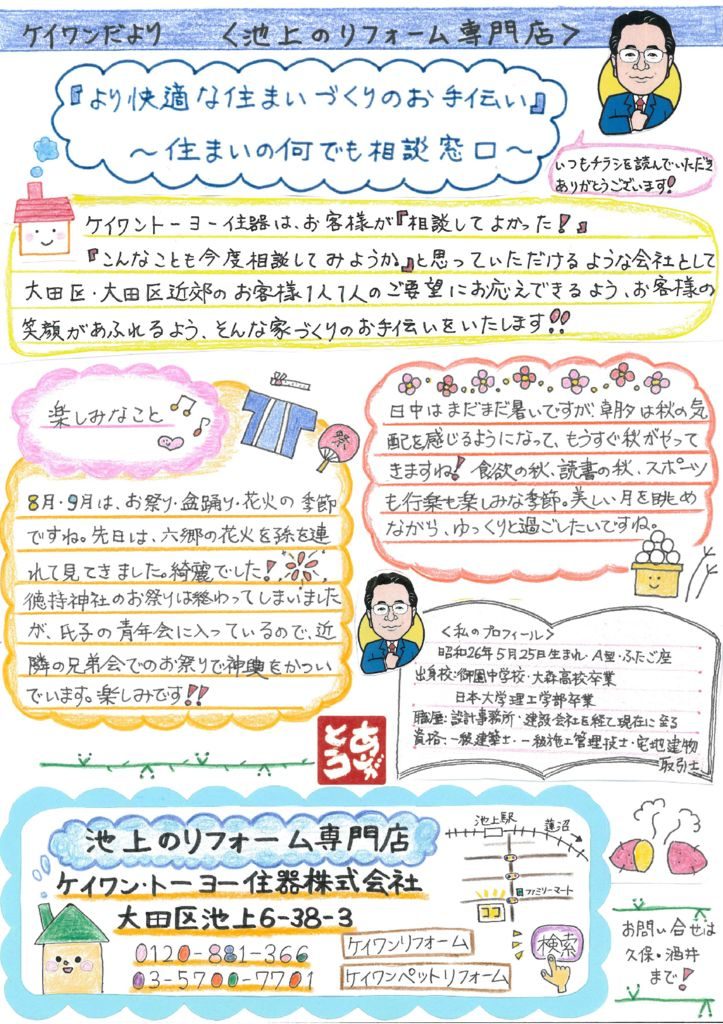 ケイワンだより　＜池上のリフォーム専門店＞
『より快適な住まいづくりのお手伝い』
～住まいの何でも相談窓口～
いつもチラシを読んでいただき
ありがとうございます!
ケイワントーヨー住器は、お客様が『相談してよかった!』
『こんなことも今度相談してみようか』と思っていただけるような会社として
大田区・大田区近郊のお客様1人1人のご要望にお応えできるよう、お客様の
笑顔があふれるよう、そんな家づくりのお手伝いをいたします!!
楽しみなこと
祭
8月・9月は、お祭り・盆踊り・花火の季節
ですね。先日は、六郷の花火を孫を連
れて見てきました。綺麗でした!
徳持神社のお祭りは終わってしまいました
が、氏子の青年会に入っているので、近
隣の兄弟会でのお祭りで神輿をかつい
でいます。楽しみです!!
日中はまだまだ暑いですが、朝夕は秋の気
配を感じるようになって、もうすぐ秋がやって
きますね! 食欲の秋、読書の秋、スポーツ
も行楽も楽しみな季節。美しい月を眺め
ながら、ゆっくりと過ごしたいですね。
＜私のプロフィール＞
昭和26年5月25日生まれ・A型・ふたご座
出身校:御園中学校・大森高校卒業
日本大学理工学部卒業
職歴:設計事務所・建設会社を経て現在に至る
資格:一級建築士・一級施工管理技士・宅地建物
取引士
ありがとう
池上のリフォーム専門店
ケイワン・トーヨー住器株式会社
大田区池上6-38-3
0120-881-366
03-5700-7701
ケイワンリフォーム
ケイワンペットリフォーム
検索
池上駅
蓮沼
ファミリーマート
ココ
お問い合せは
久保・酒井
まで!